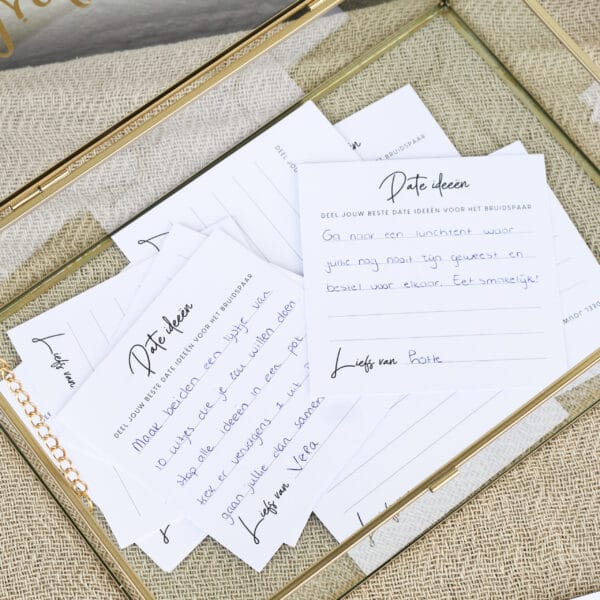 Date ideeën
DEEL JOUW BESTE DATE IDEEËN VOOR HET BRUIDSPAAR
Ga naar een lunchtent waar
jullie nog nooit zijn geweest en
bestel voor elkaar. Eet smakelijk!
Liefs van Lotte
Date ideeën
DEEL JOUW BESTE DATE IDEEËN VOOR HET BRUIDSPAAR
Maak beiden een lijstje van
10 uitjes die je zou willen doen
stop alle ideeën in een pot
trek er vervolgens 1 uit
gaan jullie dan samen
Liefs van Vera
DEEL JOUW BESTE
BRUIDSPAAR
Liefs van